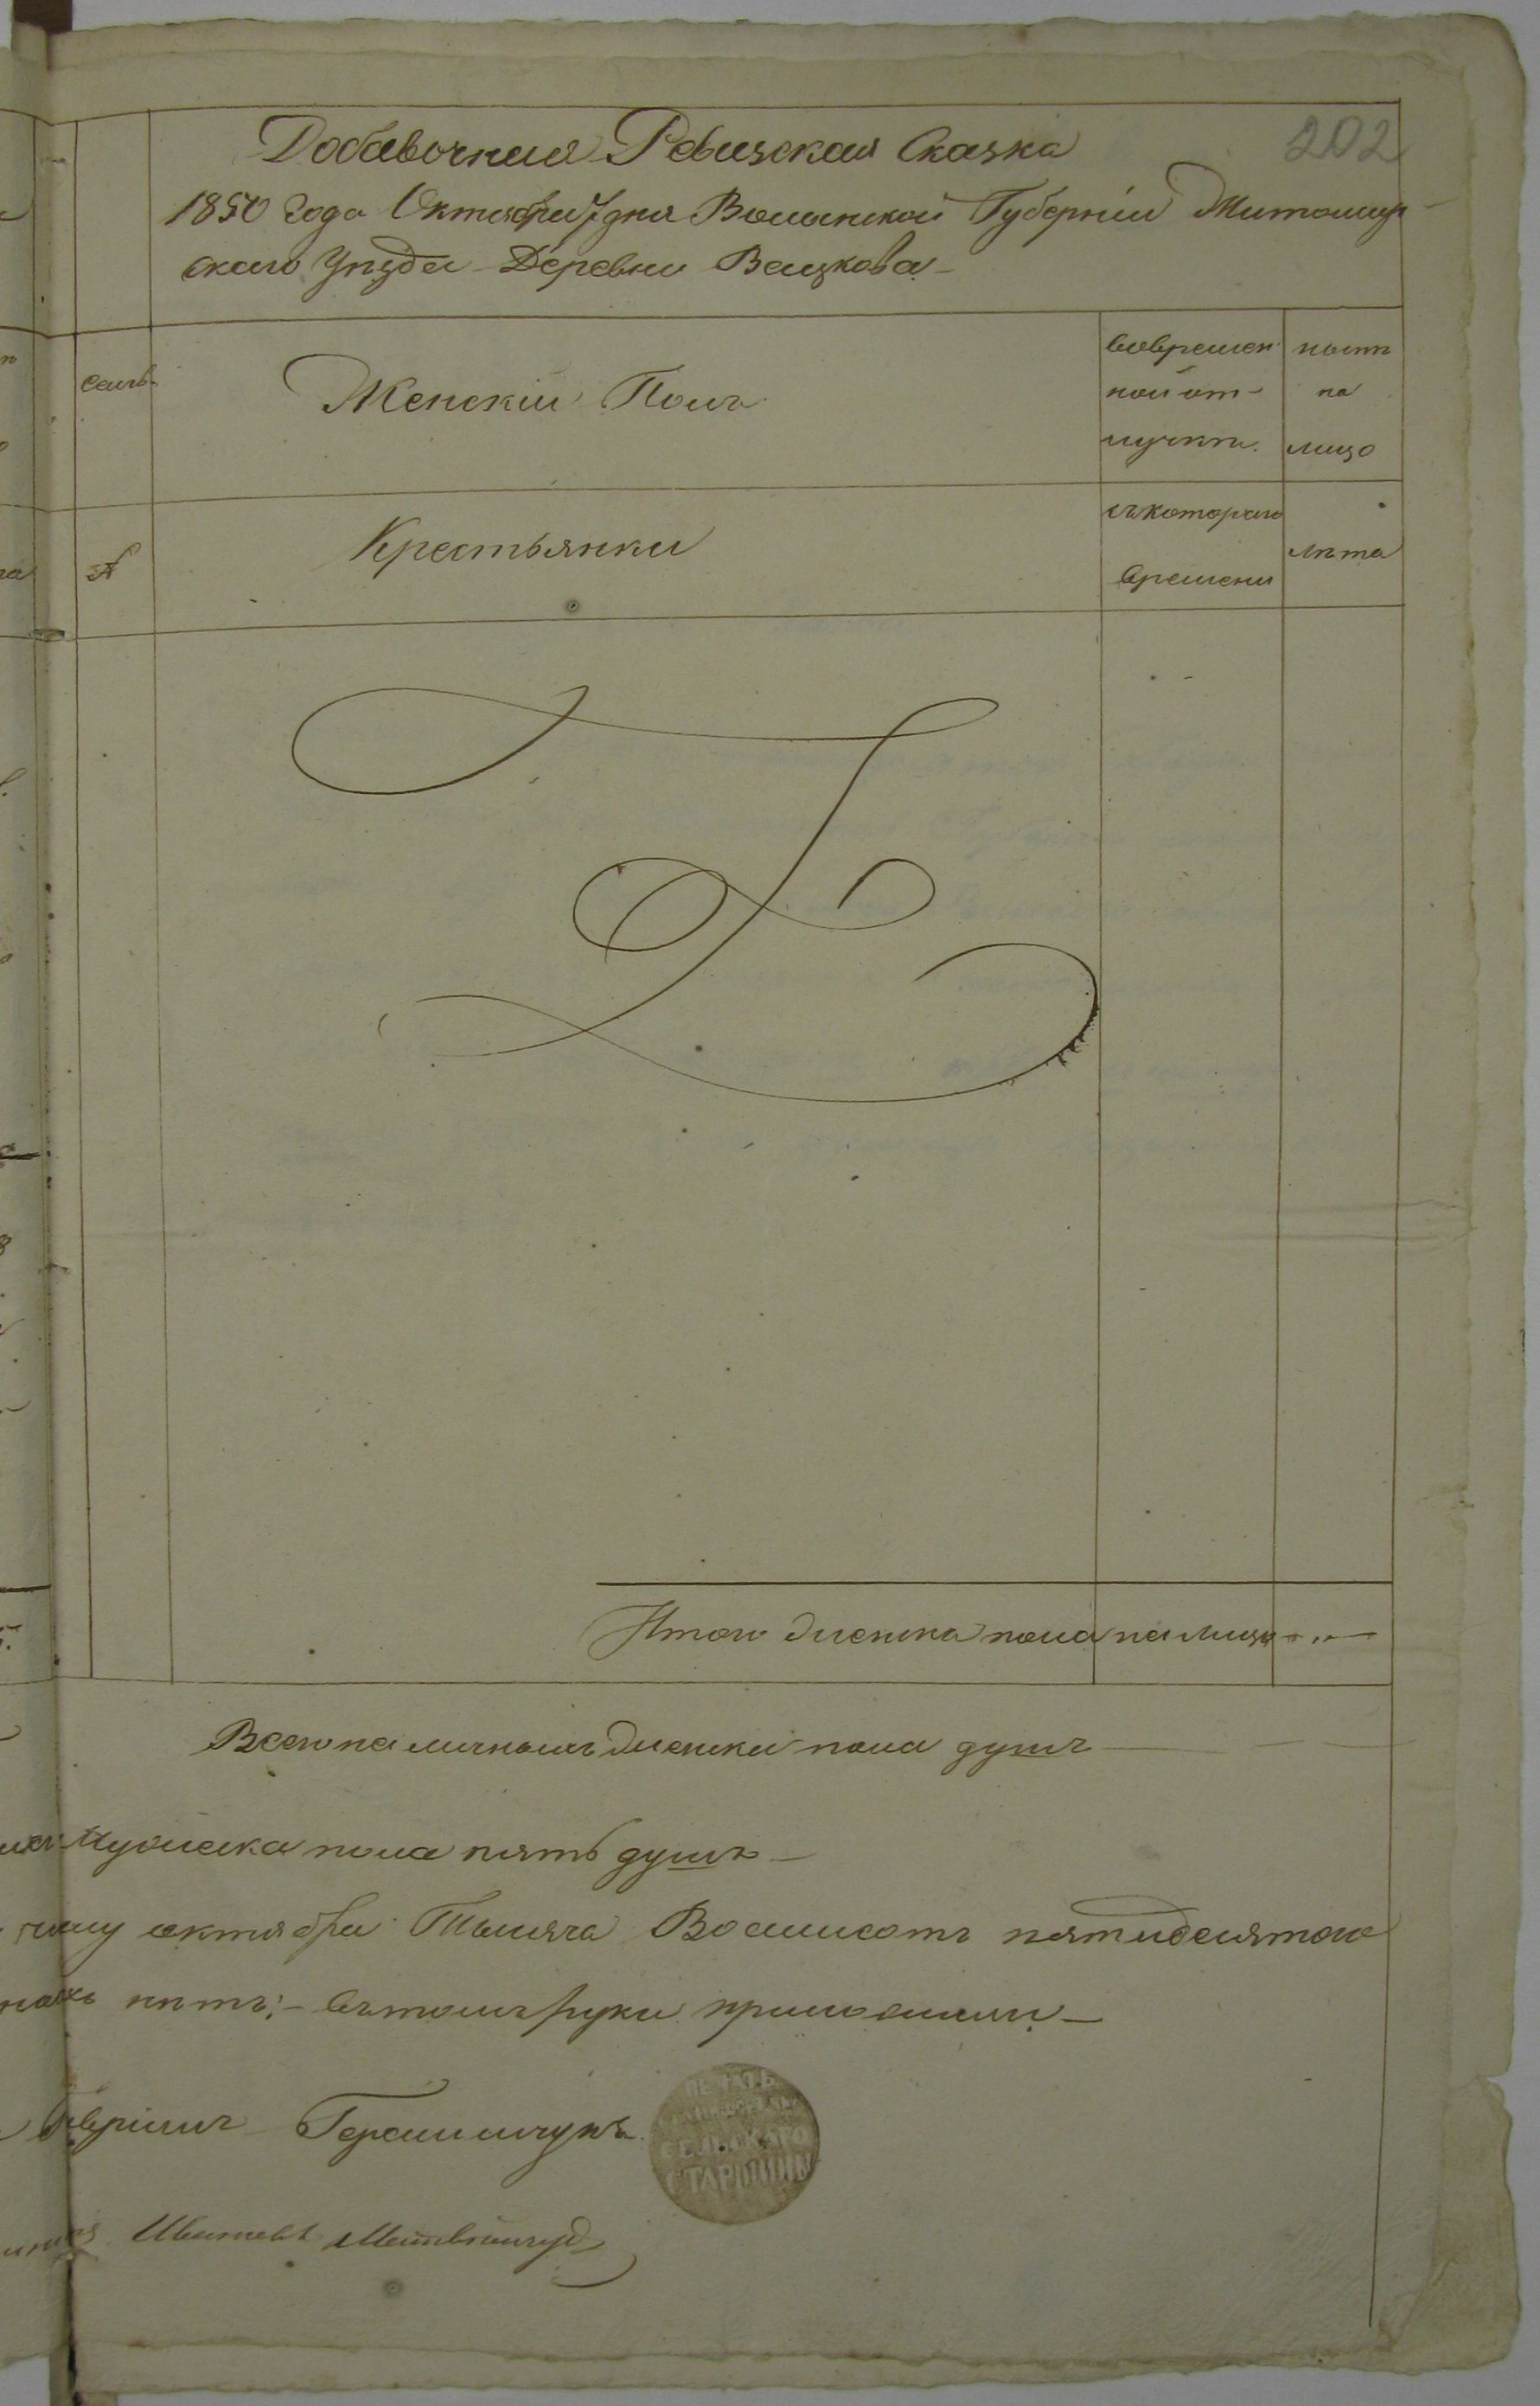 202
Добавочная Ревизская Сказка
1850 года Октября 7 дня Волынской Губерніи Житомир
скаго Уѣзда Деревни Вацкова
семь
Женскій Полъ
вовремен
ной от-
лучкѣ.
нынѣ
на
лицо
№
Крестьянки
съ котораго
времени
лѣта
Итого женска пола на лицо
Всего на личномъ женска пола душъ
Мужеска пола пять душъ
октября Тысяча Восмисотъ пятидесятого
нѣтъ; въ томъ руки приложили
Герасимчукъ
ПЕЧАТЬ
СЕЛЬСКАГО
СТАРШИН